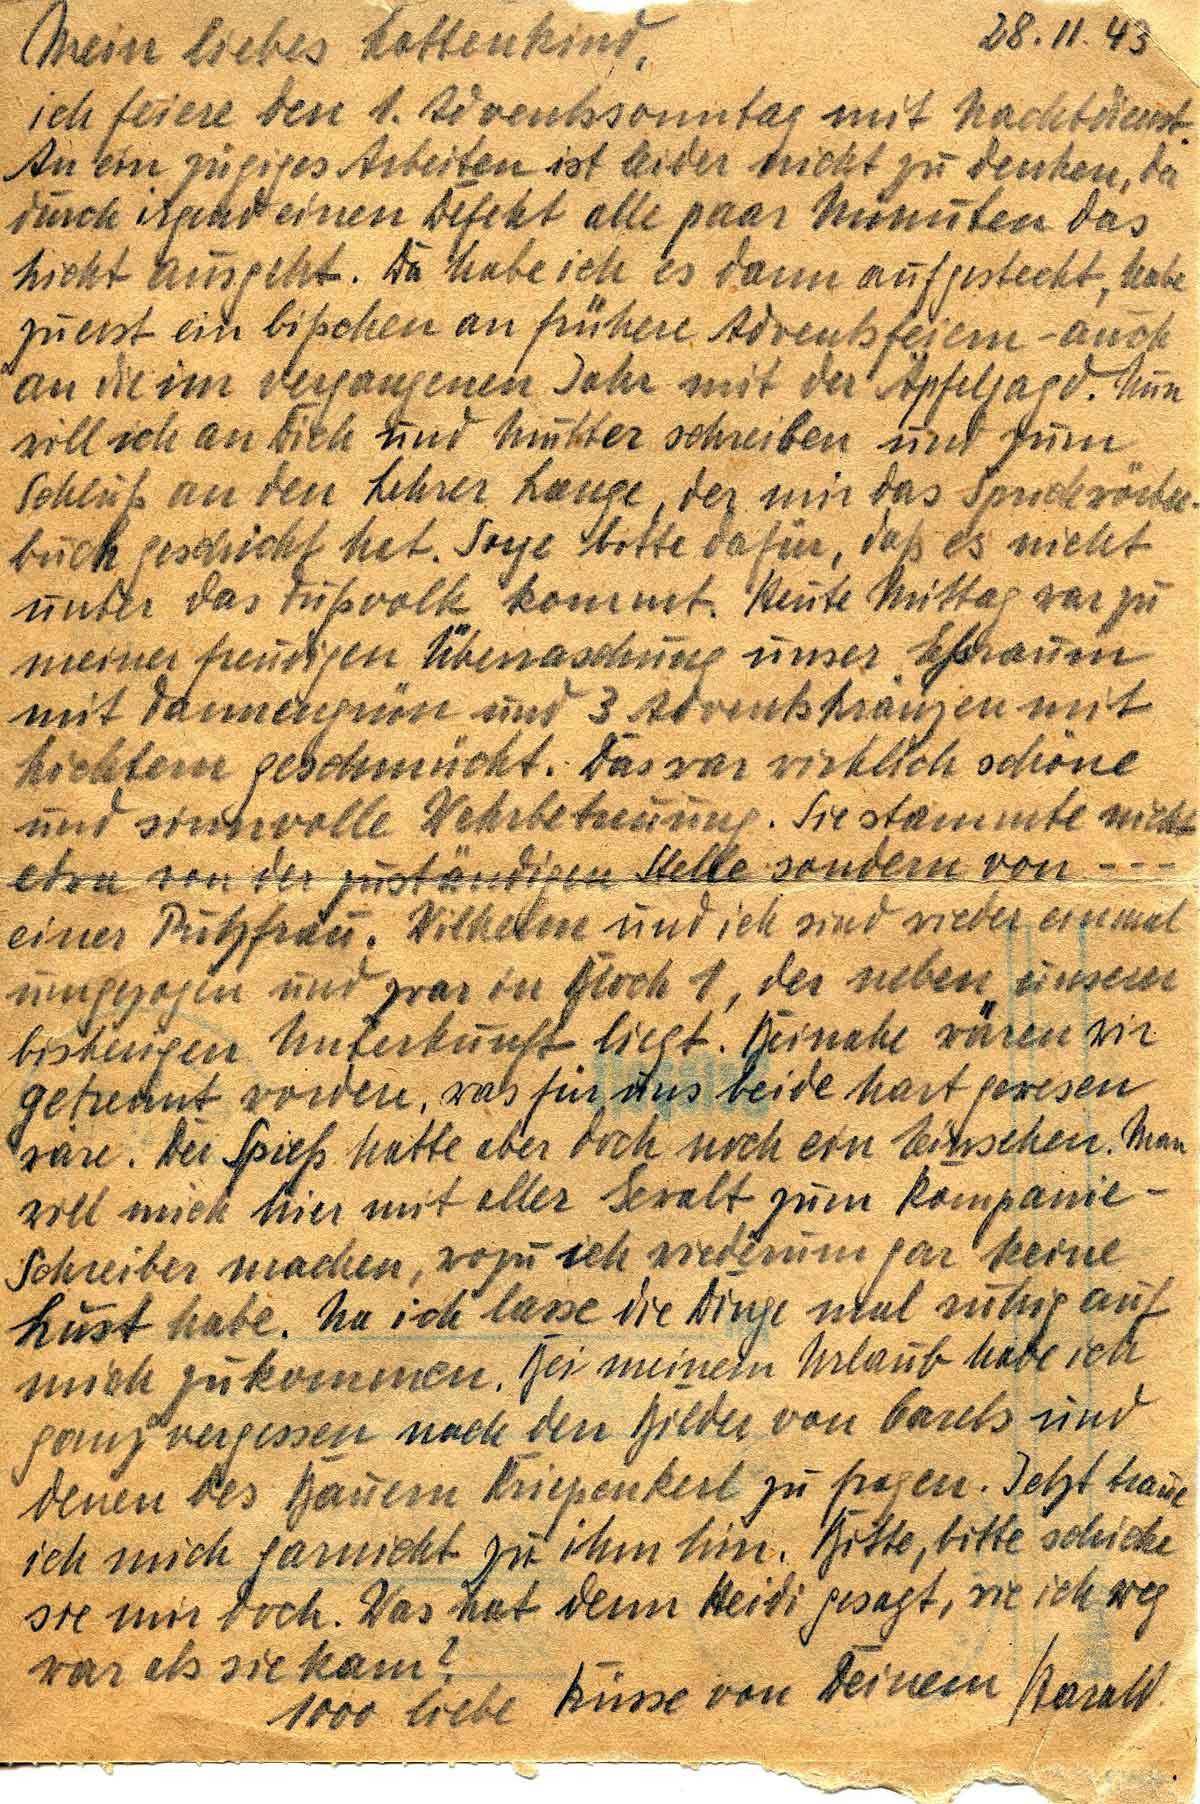 28.11.43
Mein liebes Lottenkind,
ich feiere den 1. Adventssonntag mit Nachtdienst.
An ein zügiges Arbeiten ist leider nicht zu denken, da
durch irgend einen Defekt alle paar Minuten das
Licht ausgeht. Da habe ich es dann aufgesteckt, habe
zuerst ein bißchen an frühere Adventsfeiern - auch
an die im vergangenen Jahr mit der Äpfeljagd. Nun
will ich an Dich und Mutter schreiben und zum
Schluß an den Lehrer Lange, der mir das Sprichwörter-
buch geschickt hat. Sorge bitte dafür, daß es nicht
unter das Fußvolk kommt. Heute Mittag war zu
meiner freudigen Überraschung unser Eßraum
mit Tannengrün und 3 Adventskränzen mit
Lichtern geschmückt. Das war wirklich schöne
und sinnvolle Wehrbetreuung. Sie stammte nicht
etwa von der zuständigen Stelle sondern von ---
einer Putzfrau. Wilhelm und ich sind wieder einmal
umgezogen und zwar in Block 1, der neben unserer
bisherigen Unterkunft liegt. Beinahe wären wir
getrennt worden, was für uns beide hart gewesen
wäre. Der Spieß hatte aber doch noch ein Einsehen. Man
will mich hier mit aller Gewalt zum Kompanie-
Schreiber machen, wozu ich wiederum gar keine
Lust habe. Na ich lasse die Dinge mal ruhig auf
mich zukommen. Bei meinem Urlaub habe ich
ganz vergessen nach den Bilder von Carels und
denen des Bauern Kriepenkerl zu fragen. Jetzt traue
ich mich garnicht zu ihm hin. Bitte, bitte schicke
sie mir doch. Was hat denn Heidi gesagt, wie ich weg
war als sie kam?
1000 liebe Küsse von Deinem Harald.